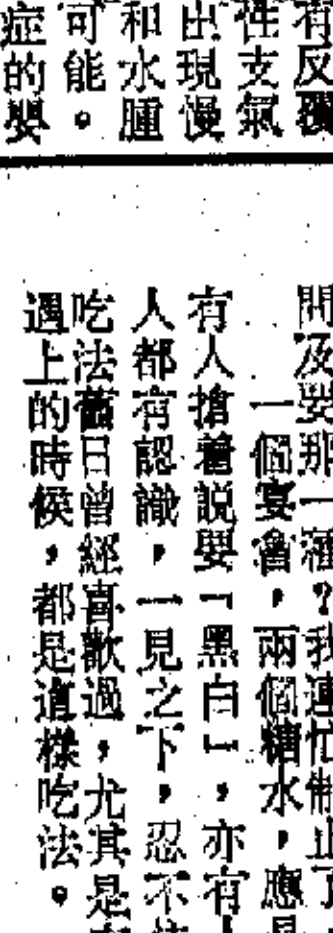 有反覆
性支氣
出現慢
和水腫
可能。
症的嬰
問及要那一種？我連忙制止了
一個宴會，兩個糖水，應是
有人搶着説要「黑白」，亦有人
人都有認識，一見之下，忍不住
吃法舊日曾經喜歡過，尤其是
遇上的時候，都是這樣吃法。